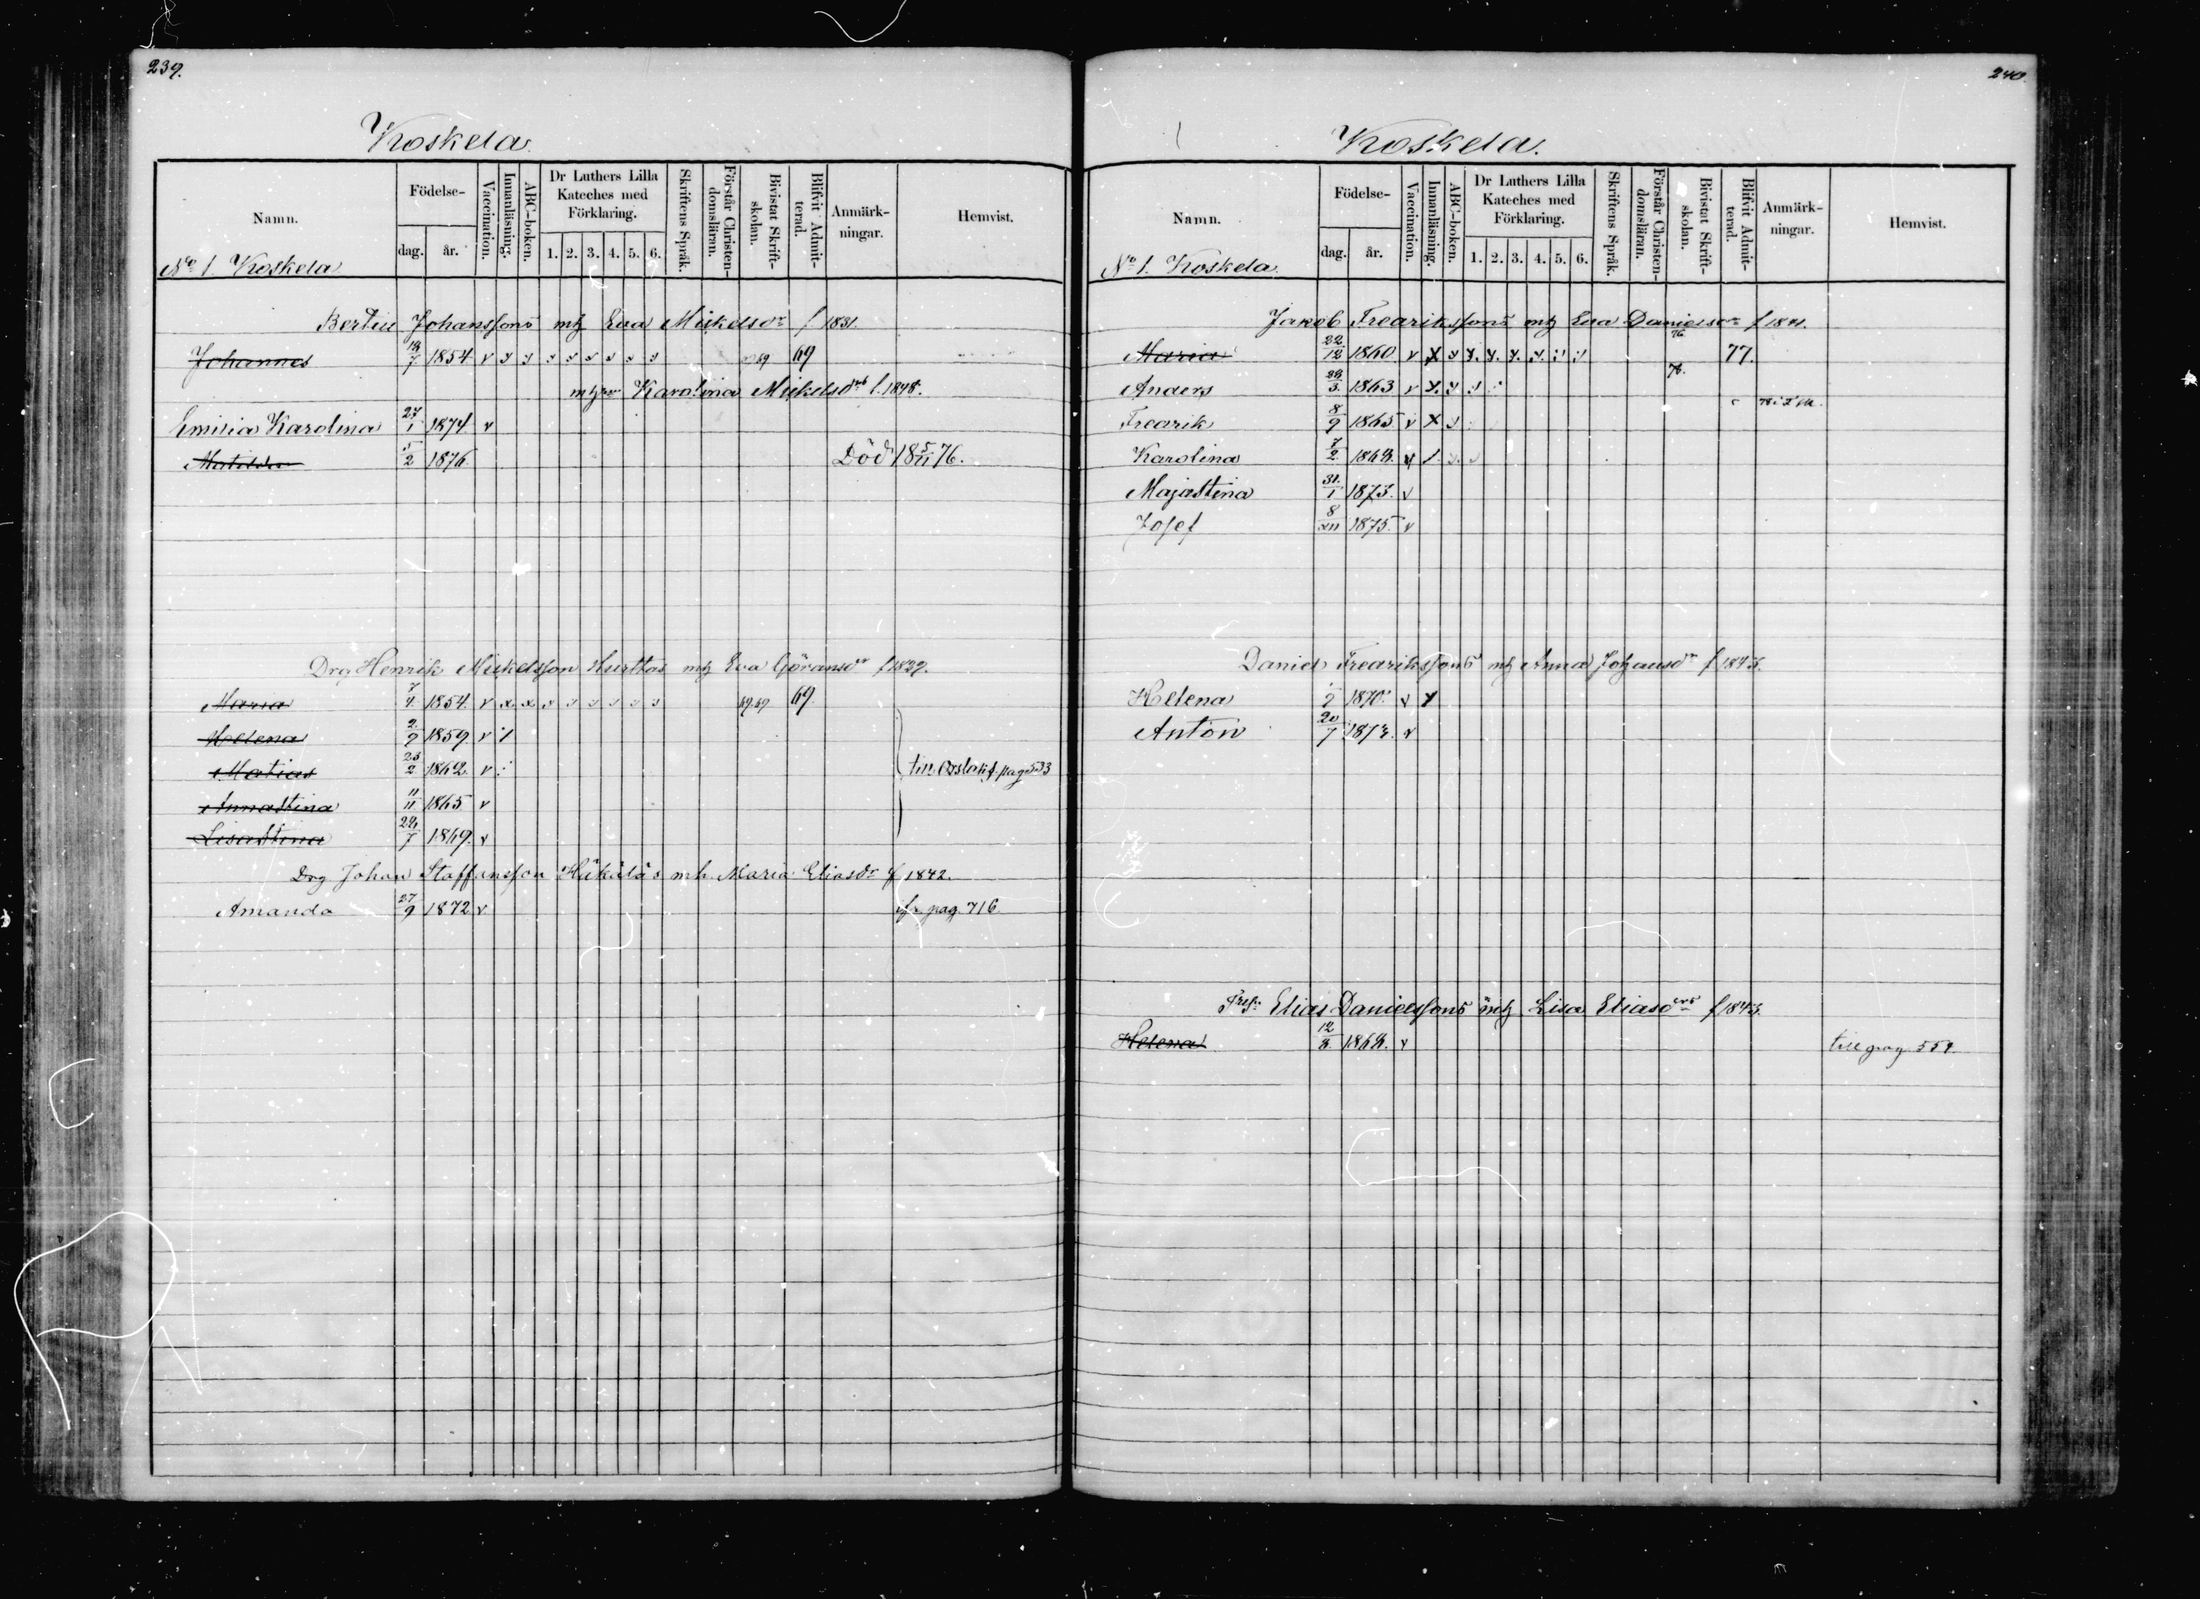 239.
Koskela.
Namn.
Födelse-
dag. år.
Vaccination.
Innanläsning.
ABC-boken.
Dr Luthers Lilla Kateches med Förklaring.
1. 2. 3. 4. 5. 6.
Skriftens Språk.
Förstår Christendomsläran.
Bivistat Skriftskolan.
Blifvit Admitterad.
Anmärkningar.
Hemvist.
No 1. Koskela
Bertin Johanssons Eva Mickelsdr f 1831.
Johannes 7 1854 v 69
Karolina Mickelsdr f. 1848.
Emilia Karolina 27/1 1874 v
5/2 1876 Död 18 5/11 76.
Drg Henrik Mickelsson Hurttas Eva Göransdr f 1829.
Maria 7/4 1854 v x x 69.69 69.
Helena 2/2 1859 v
Matias 2 1862 v pag 533
Annastina 11/11 1865 v
Lisastina 7 1869. v
Drg Johan Staffansson mh Maria Eliasdr f 1842.
Amanda 27/9 1872 v pag. 716.
240.
Koskela.
Namn.
Födelse-
dag. år.
Vaccination.
Innanläsning.
ABC-boken.
Dr Luthers Lilla Kateches med Förklaring.
1. 2. 3. 4. 5. 6.
Skriftens Språk.
Förstår Christendomsläran.
Bivistat Skriftskolan.
Blifvit Admitterad.
Anmärkningar.
Hemvist.
No 1. Koskela.
Jakob Fredrikssons Eva Danielsdr f 1841.
76.
Maria 22/12 1860 v 77.
76.
Anders 3. 1863 v
Fredrik 8/9 1865 v x
Karolina 7/2 1868.
Majastina 31/1 1873. v
Josef 8/XII 1875. v
Daniel Fredrikssons Anna Johansdr f 1843.
Helena 1870. v
Anton 20/7 1873. v
Elias Danielssons Lisa Eliasdrs f 1843.
Helena 12 1868. v till pag. 559.